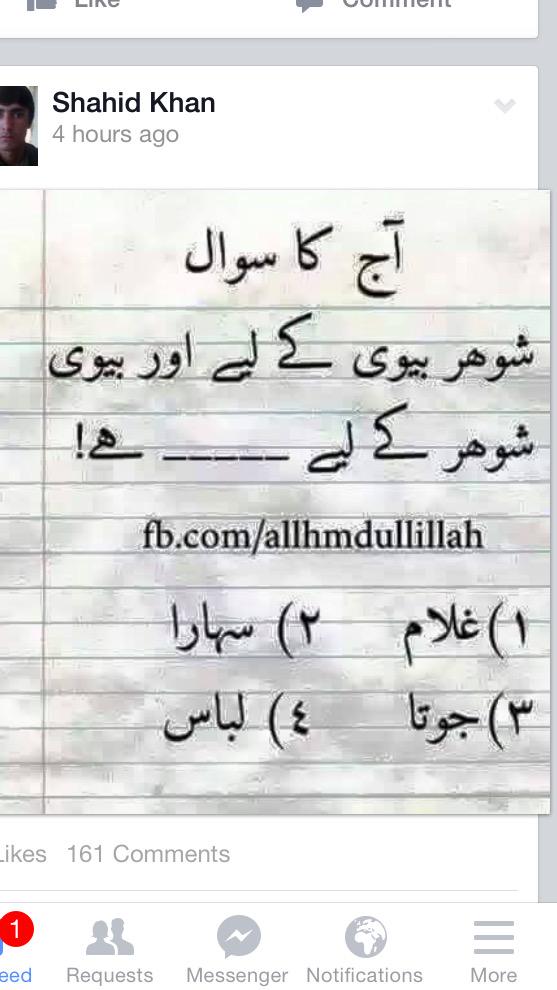 Like Comment
Shahid Khan
4 hours ago
آج کا سوال
شوھر بیوی کے لیے اور بیوی
شوھر کے لیے _____ ھے!
fb.com/allhmdullillah
١) غلام ٢) سہارا
٣) جوتا ٤) لباس
Likes 161 Comments
1
eed Requests Messenger Notifications More